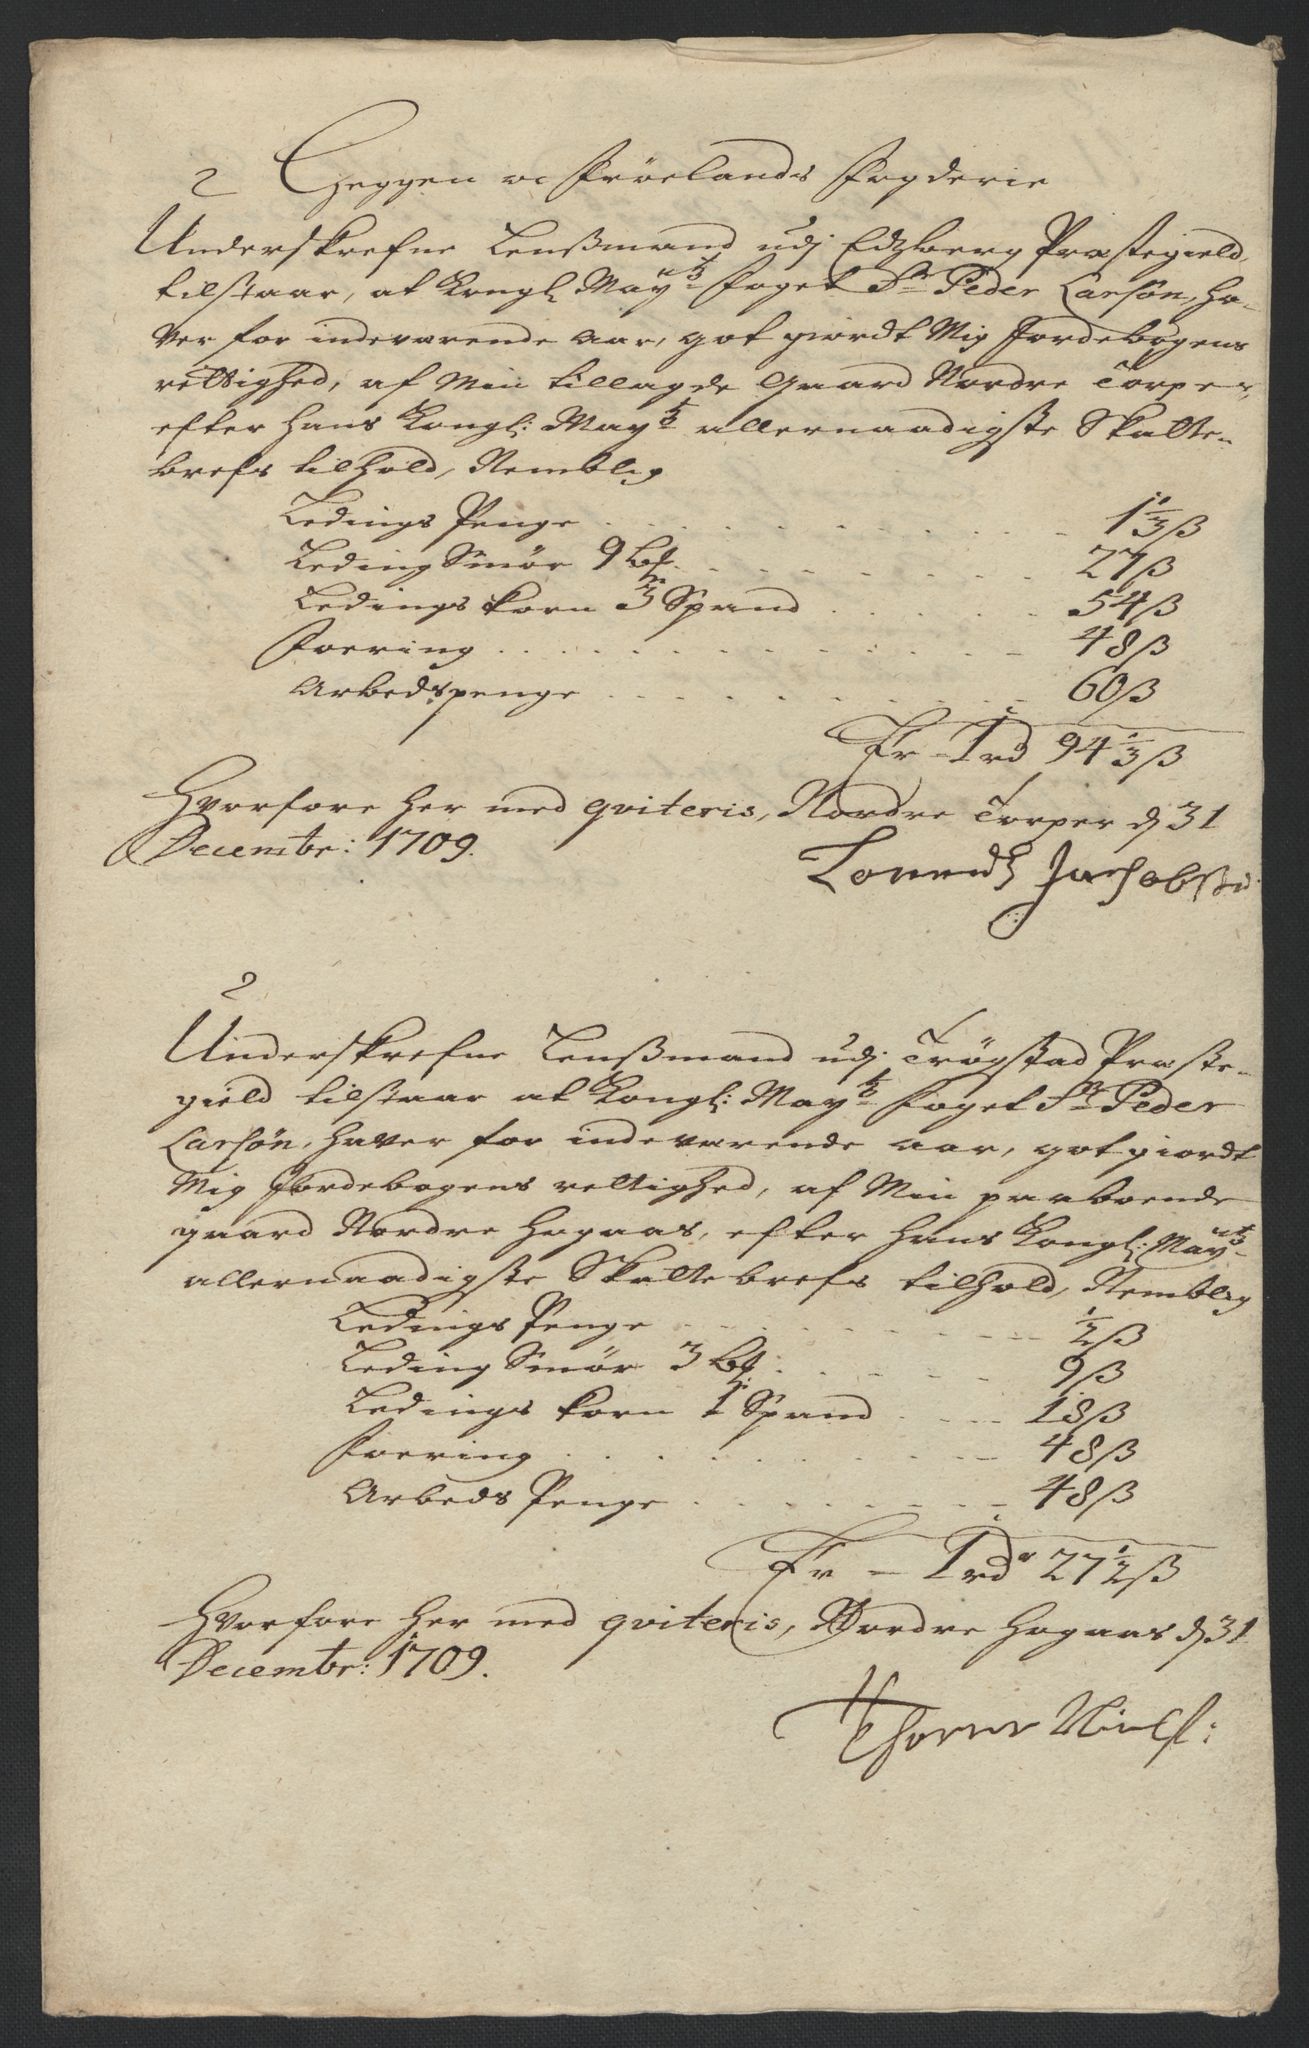 Heggen oc Fröelands Fogderie
2
Underskrefne Lensmand udj Edzberg Præstegield,
tilstaar, at Kongl May:ts Foget Sr Peder Larsön, ha-
ver for indeværende Aar, got giordt Mig Jordebogens
rettighed, af Min tillagde Gaard Nordre Torper,
efter Hans Kongl: May:ts allernaadigste Skatte-
brefs tilhold, Nemblig
Ledings Penge 1 1/3 ß
Leding Smör 9 

 27 ß
Ledings korn 3 Spand 54 ß
Foering 48 ß
Arbedspenge 60 ß
Er 1 rd 94 1/3 ß
Hvorfore her med qviteris, Nordre Torper d 31
Decembr: 1709.
Jachobsen
2
Underskrefne Lensmand udj Trögstad Præste-
gield tilstaar at Kongl: May:ts Foget Sr Peder
Larsön, haver for indeværende aar, got giordt
Mig Jordebogens rettighed, af Min paaboende
gaard Nordre Hagaas, efter Hans Kongl: May:ts
allernaadigste Skattebrefs tilhold, Nemblig
Ledings Penge 1/2 ß
Leding Smör 3 9 ß
Ledings korn 1 Spand 18 ß
Foering 48 ß
Arbeds Penge 48 ß
Er 1 rdr 27 1/2 ß
Hvorfore her med qviteris, Nordre Hagaas d 31
Decembr: 1709.
Niels: